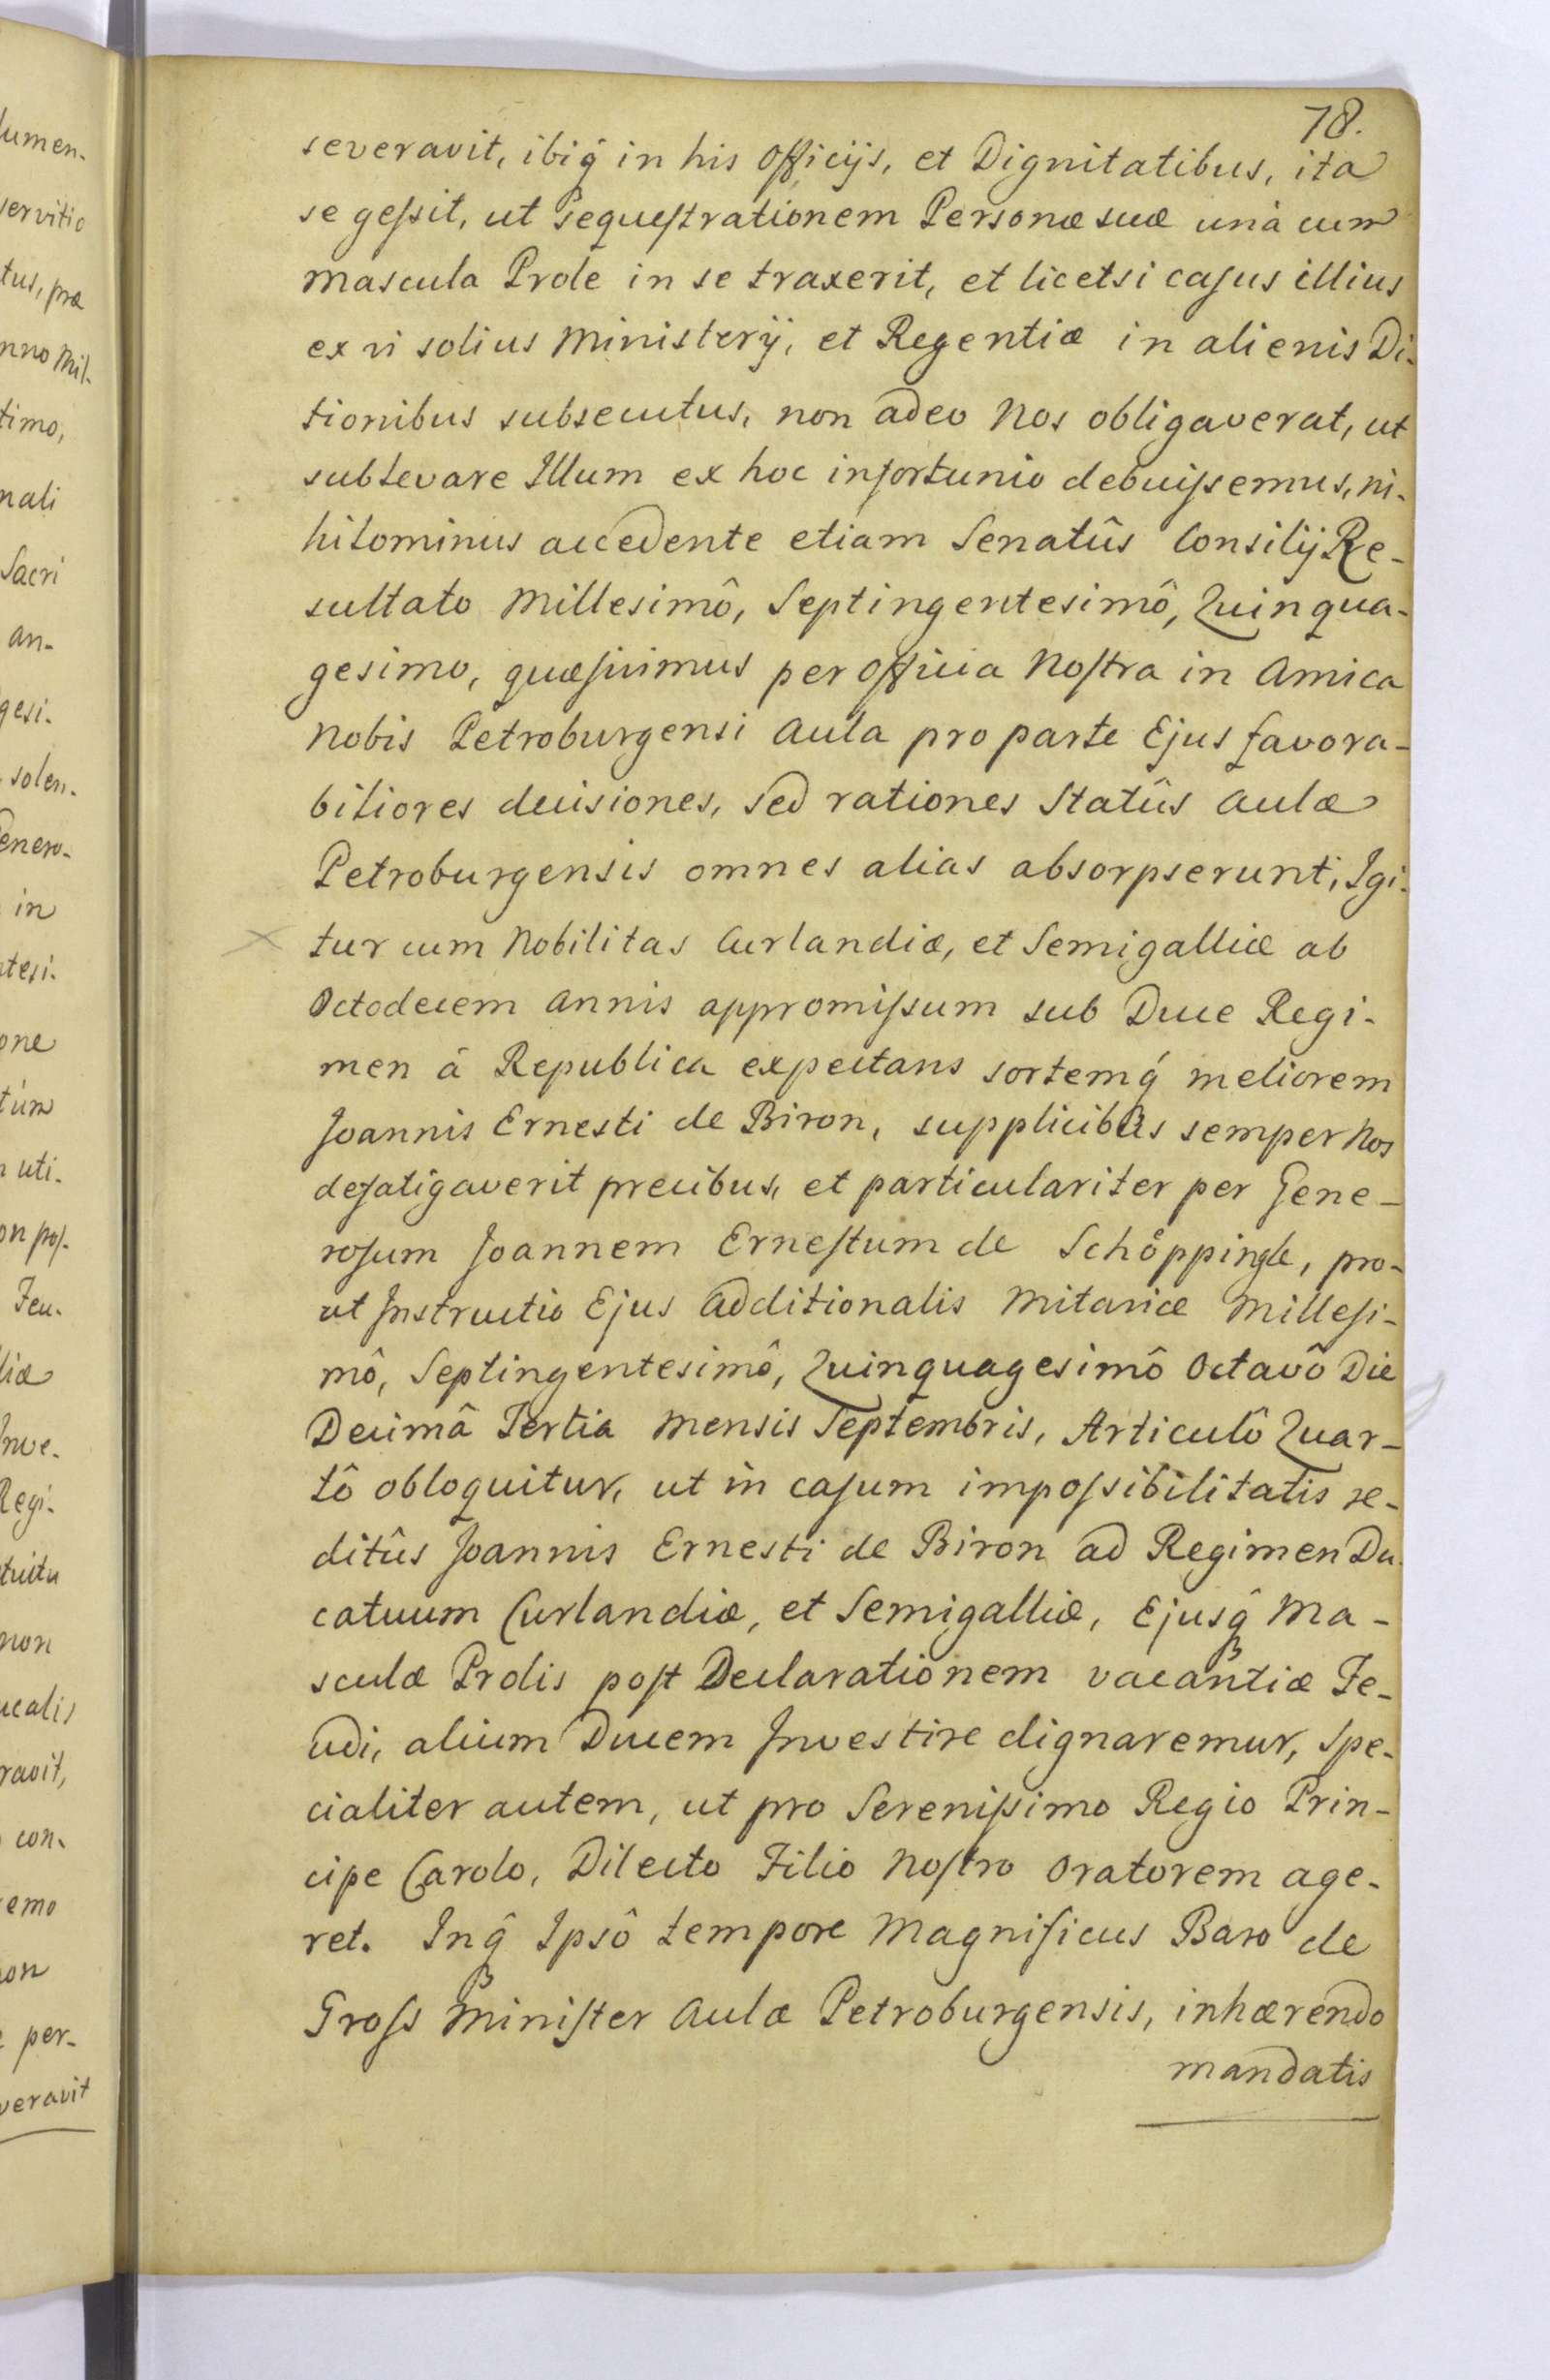 78.
severavit, ibiq̃ in his Officijs, et Dignitatibus, ita
se geſsit, ut Sequeſtrationem Personæ suæ unà cum
mascula Prole in se traxerit, et licetsi caſus illius
ex vi solius Ministerij, et Regentiæ in alienis Di-
tionibus subsecutus, non adeo Nos obligaverat, ut
sublevare Illum ex hoc infortunio debuiſsemus, ni-
hilominus accedente etiam Senatûs Consilij Re-
sultato Millesimô, Septingentesimô, Quinqua-
gesimo, quæſivimus per Officia Noſtra in Amica
Nobis Petroburgensi Aula pro parte Ejus favora-
biliores decisiones, sed rationes Statûs Aulæ
Petroburgensis omnes alias absorpserunt, Igi-
tur cum Nobilitas Curlandiæ, et Semigalliæ ab
Octodecem Annis appromiſsum sub Duce Regi-
men à Republica expectans sortemq́ meliorem
Joannis Ernesti de Biron, supplicibus semper Nos
defatigaverit precibus, et particulariter per Gene-
roſum Joannem Erneſtum de Schöppingk, pro-
ut Instructio Ejus Additionalis Mitaviæ Milleſi-
mô, Septingentesimô, Quinquagesimô Octavô Die
Decimâ Tertia Mensis Septembris, Articulô Quar-
tô obloquitur, ut in caſum impoſsibilitatis re-
ditûs Joannis Ernesti de Biron ad Regimen Du-
catuum Curlandiæ, et Semigalliæ, Ejusq̃ Ma-
sculæ Prolis poſt Declarationem vacantiæ Fe-
udi, alium Ducem Investire dignaremur, Spe-
cialiter autem, ut pro Sereniſsimo Regio Prin-
cipe Carolo, Dilecto Filio Noſtro Oratorem age-
ret. Inq̃ Ipsô tempore Magnificus Baro de
Groſs Miniſter Aulæ Petroburgensis, inhærendo
mandatis
lumen-
servitio
tus, præ
nno Mil-
timo,
nali
Sacri
an-
gesi-
solen-
Genero-
in
ntesi-
one
tùm
uti-
on poſ-
Feu-
liæ
Inve-
Regi-
non
ucalis
ravit,
con-
emo
non
per-
veravit